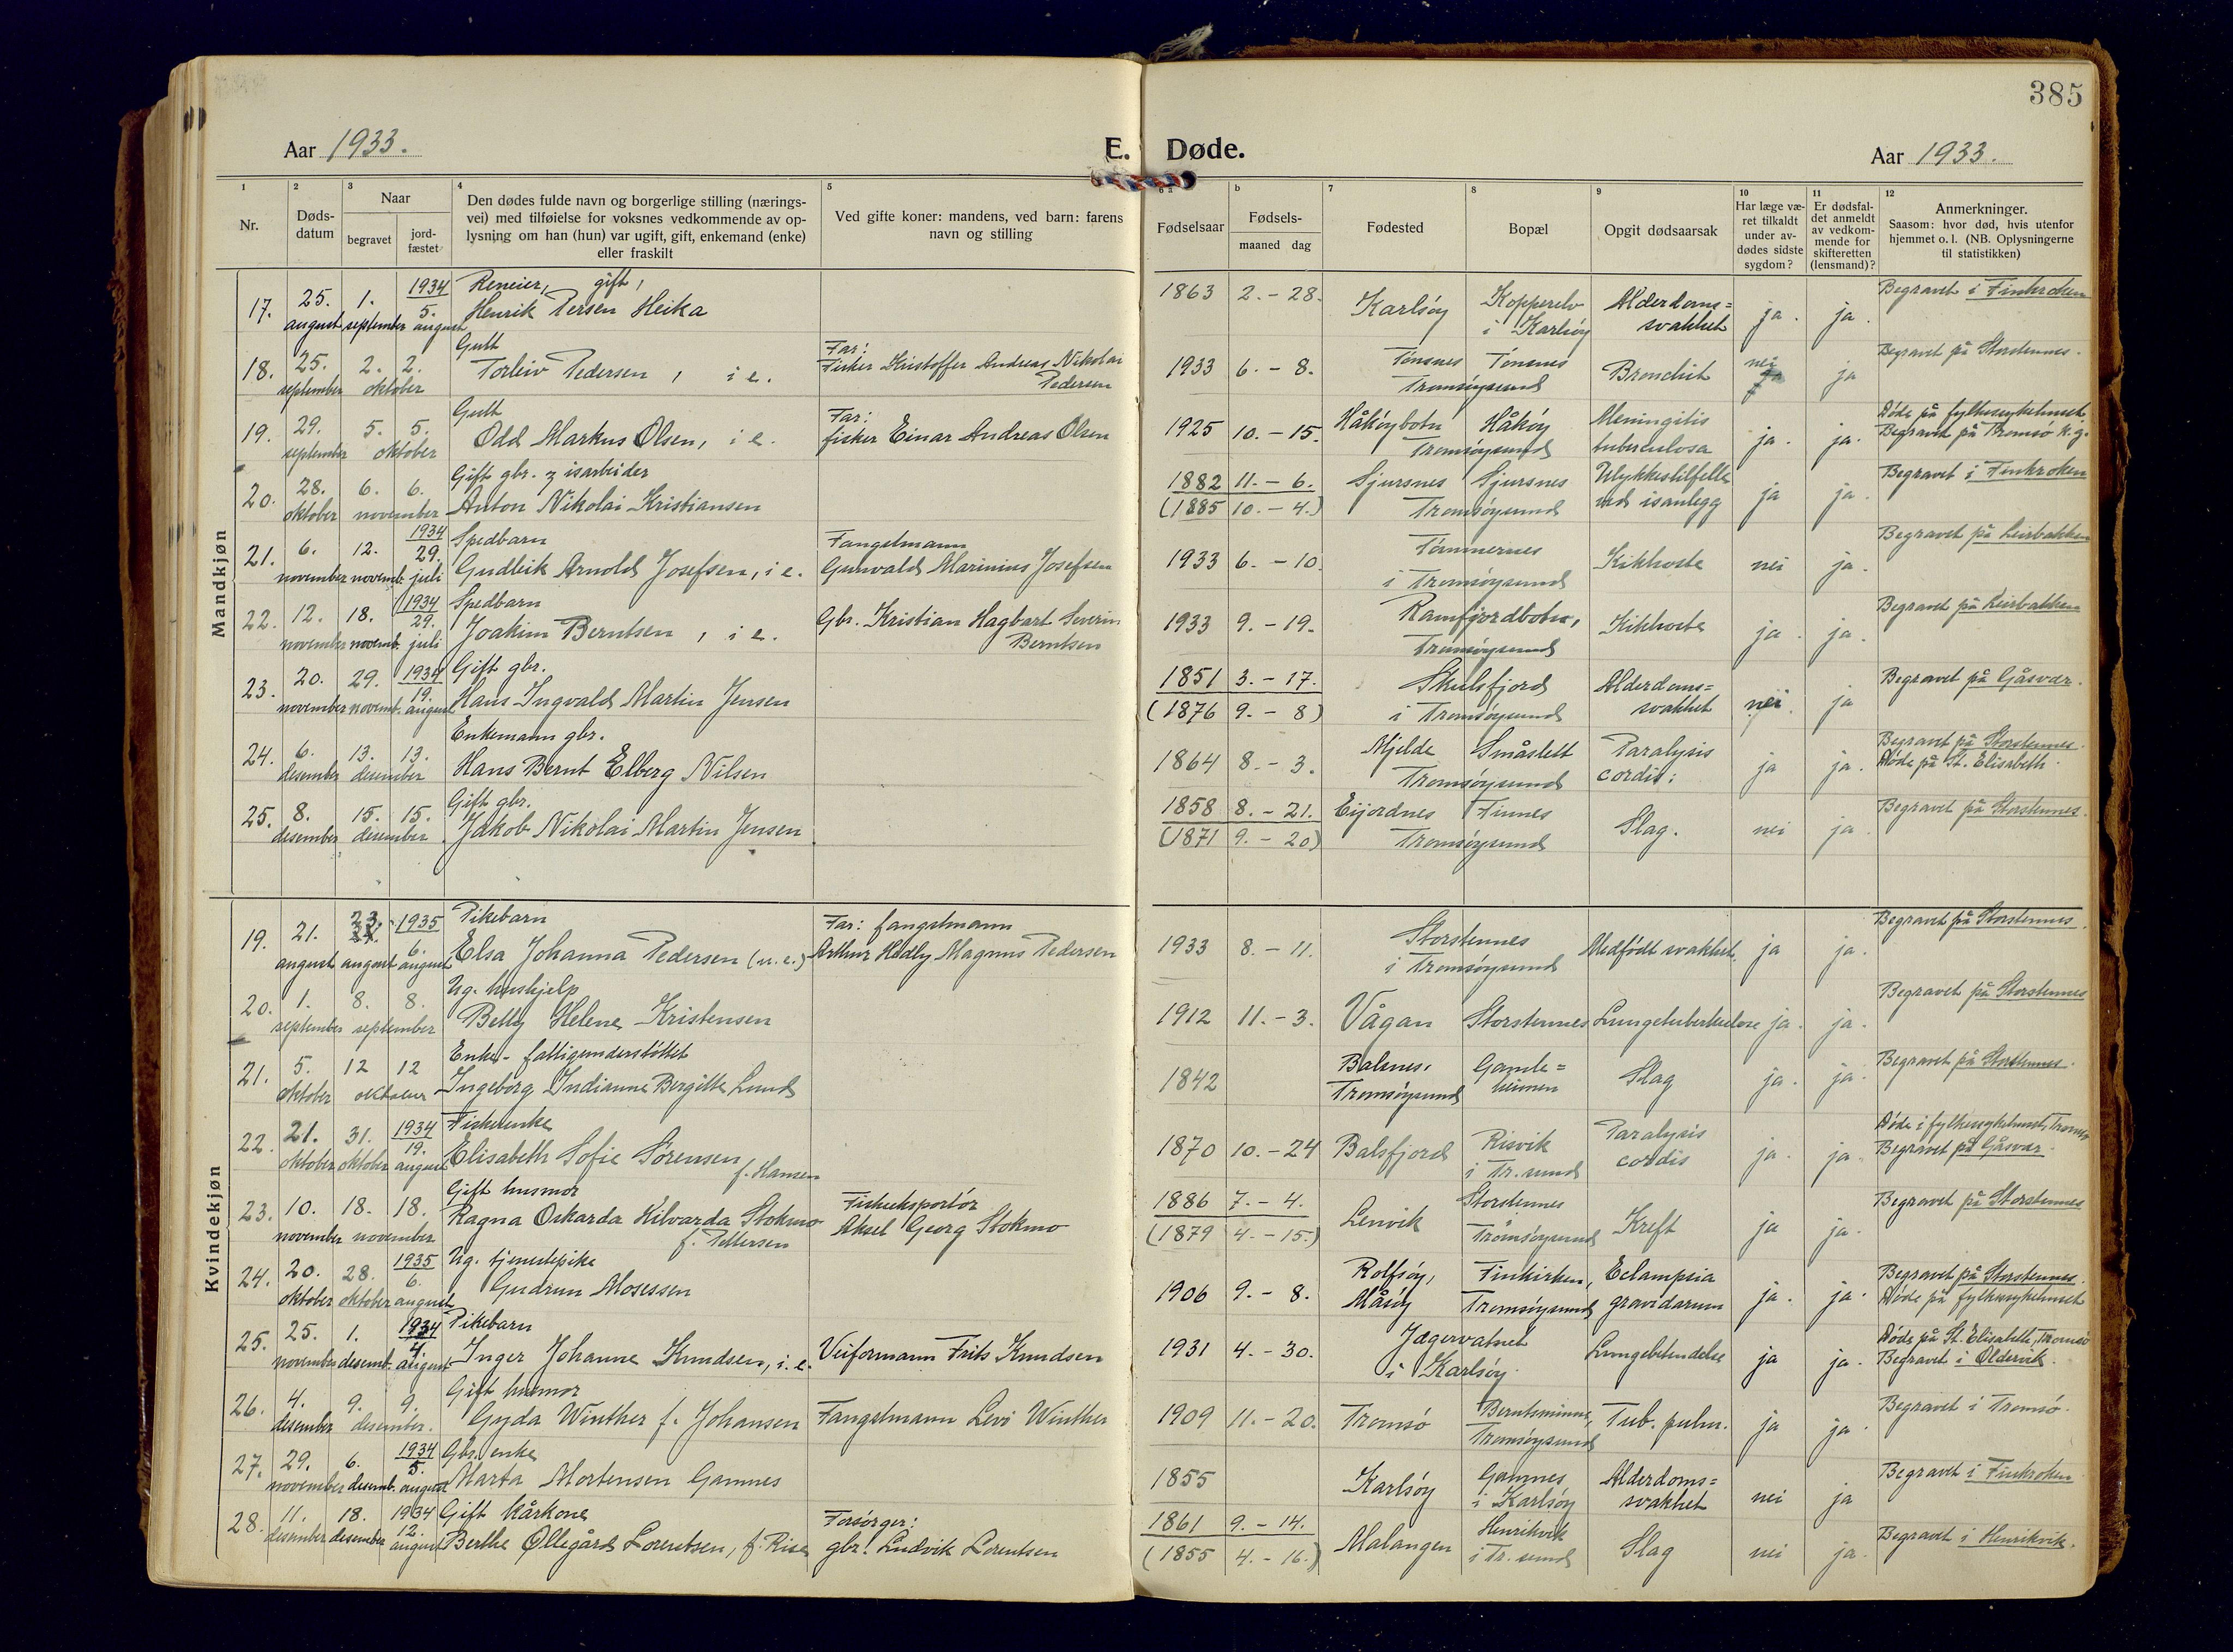 385
Aar 1933.
E. Døde.
Aar 1933.
1 2 3 4 5 6 a b 7 8 9 10 11 12
Nr.
Døds-
datum
Naar
begravet
jord-
fæstet
Den dødes fulde navn og borgerlige stilling (nærings-
vei) med tilføielse for voksnes vedkommende av op-
lysning om han (hun) var ugift, gift, enkemand (enke)
eller fraskilt
Ved gifte koner: mandens, ved barn: farens
navn og stilling
Fødselsaar
Fødsels-
maaned dag
Fødested
Bopæl
Opgit dødsaarsak
Har læge væ-
ret tilkaldt
under av-
dødes sidste
sygdom?
Er dødsfal-
det anmeldt
av vedkom-
mende for
skifteretten
(lensmand)?
Anmerkninger.
Saasom: hvor død, hvis utenfor
hjemmet o. l. (NB. Oplysningerne
til statistikken)
Mandkjøn
17. 25. august 1. september 1934 5. august Reneier, gift,
Henrik Persen Heika 1863 2. - 28. Karlsöy Kopperelv i Karlsöy Alderdoms= svakhet ja. ja. Begravet i Finkroken
18. 25. september 2. 2. oktober Gutt
Torleiv Pedersen, i e. Far:
Fisker Kristoffer Andreas Nikolai
Pedersen 1933 6. - 8. Tönsnes Tönsnes Tromsöysund Bronchit nei ja Begravet på Storstennes.
19. 29. september 5. 5. oktober Gutt
Odd Markus Olsen, i e. Far:
fisker Einar Andreas Olsen 1925 10. - 15. Håköybotn Håköy Tromsöysund Meningitis tuberculosa ja. ja. Döde på fylkessykehuset
Begravet på Tromsö k.g.
20. 28. oktober 6. 6. november Gift gbr. & isarbeider
Anton Nikolai Kristiansen 1882 11. - 6. (1885 10. - 4.) Sjursnes Sjursnes Tromsöysund Ulykkestilfelle ved isanlegg ja ja. Begravet i Finkroken
21. 6. november 12. novemb. 1934 29. juli Spedbarn
Gudleik Arnold Josefsen, i e. Fangstmann
Gunvald Marinius Josefsen 1933 6. - 10. Tönnernes i Tromsöysund Kikhoste nei ja. Begravet på Leirbakken
22. 12. november 18. novemb. 1934 29. juli Spedbarn
Joakim Berntsen, i e. Gbr. Kristian Hagbart Severin
Berntsen 1933 9. - 19. Ramfjordbotn, Tromsöysund Kikhoste ja. ja. Begravet på Leirbakken
23. 20. november 29. novemb. 1934 19. august Gift gbr.
Hans Ingvald Martin Jensen 1851 3. - 17. (1876 9. - 8) Skulsfjord i Tromsöysund Alderdoms= svakhet nei. ja Begravet på Gåsvær.
24. 6. desember 13. 13. desember Enkemann gbr.
Hans Bernt Elberg Nilsen 1864 8. - 3. Mjelde Småslett Tromsöysund Paralysis cordis. ja ja. Begravet på Storstennes.
Döde på St. Elisabeth.
25. 8. desember 15. 15. desember Gift gbr.
Jakob Nikolai Martin Jensen 1858 8. - 21. (1871 9. - 20) Eijordnes Finnes Tromsöysund Slag. nei ja. Begravet på Storstennes.
Kvindekjøn
19. 21. august 23. august 1935 6. august Pikebarn
Elsa Johanna Pedersen (u.e.) Far: fangstmann
Arthur Hadly Magnus Pedersen 1933 8. - 11. Storstennes i Tromsöysund Medfödt svakhet. ja ja. Begravet på Storstennes.
20. 1. september 8. 8. september Ug. hushjelp
Betty Helene Kristensen 1912 11. - 3. Vågan Storstennes Lungetuberkulose ja. ja. Begravet på Storstennes
21. 5. oktober 12 12 oktober Enke - fattigunderstöttet
Ingeborg Indianna Bergitte Lund 1842 Balnes, Tromsöysund Gamle= heimen Slag ja. ja. Begravet på Storstennes.
22. 21. oktober 31. oktober 1934 19. august Fiskerenke
Elisabeth Sofie Sörensen
f. Hansen 1870 10. - 24 Balsfjord Risvik i Tr.sund Paralysis cordis ja. ja. Döde i fylkessykehuset, Tromsö
Begravet på Gåsvær.
23. 10. november 18. 18. november Gift husmor
Ragna Oskarda Hilvarda Stokmo
f. Pettersen Fiskeeksportör
Aksel Georg Stokmo 1886 7. - 4. (1879 4. - 15.) Lenvik Storstennes Tromsöysund Kreft ja ja. Begravet på Storstennes
24. 20. oktober 28. oktober 1935 6. august Ug. tjenestepike
Gudrun Mosessen 1906 9. - 8. Rolfsöy, Måsöy Finkirken, Tromsöysund Eclampsia gravidarum ja. ja. Begravet på Storstennes.
Döde på fylkessykehuset
25. 25. november 1. desemb. 1934 4. august Pikebarn
Inger Johanne Knudsen, i. e. Veiformann Frits Knudsen 1931 4. - 30. Jægervatnet i Karlsöy. Lungebetendelse ja ja. Döde på St. Elisabeth, Tromsö
Begravet i Oldervik.
26. 4. desember 9. 9. desember. Gift husmor
Gyda Winther f. Johansen Fangstmann Levi Winther 1909 11. - 20. Tromsö Berntsminne, Tromsöysund Tub. pulm. ja ja. Begravet i Tromsö.
27. 29. november 6. desemb. 1934 5. august Gbr. enke
Marta Mortensen Gamnes 1855 Karlsöy Gamnes i Karlsöy Alderdoms= svakhet nei ja Begravet i Finkroken
28. 11. desember 18. desember 1934 12. august Gift kårkone
Berthe Ollegård Lorentsen, f. Rise Forsörger:
gbr. Ludvik Lorentsen 1861 9. - 14. (1855 4. - 16.) Malangen Henrikvik i Tr. sund Slag nei ja. Begravet i Henrikvik.